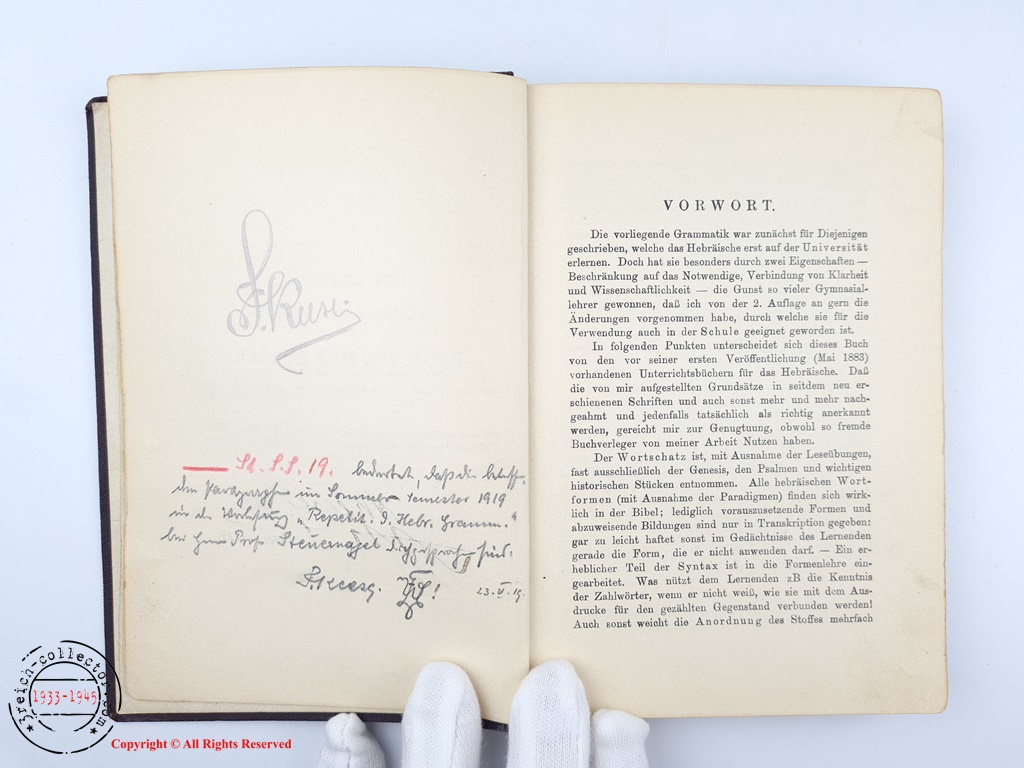 St. S.S. 19. bedeutet, daß die betreffen-
den Paragraphen im Sommer-Semester 1919
in der Vorlesung „Repetit. d. Hebr. Gramm."
bei Herrn Prof. Steuernagel durchgesprochen sind.
23.VI.19.
VORWORT.
Die vorliegende Grammatik war zunächst für Diejenigen
geschrieben, welche das Hebräische erst auf der Universität
erlernen. Doch hat sie besonders durch zwei Eigenschaften —
Beschränkung auf das Notwendige, Verbindung von Klarheit
und Wissenschaftlichkeit — die Gunst so vieler Gymnasial-
lehrer gewonnen, daß ich von der 2. Auflage an gern die
Änderungen vorgenommen habe, durch welche sie für die
Verwendung auch in der Schule geeignet geworden ist.
In folgenden Punkten unterscheidet sich dieses Buch
von den vor seiner ersten Veröffentlichung (Mai 1883)
vorhandenen Unterrichtsbüchern für das Hebräische. Daß
die von mir aufgestellten Grundsätze in seitdem neu er-
schienenen Schriften und auch sonst mehr und mehr nach-
geahmt und jedenfalls tatsächlich als richtig anerkannt
werden, gereicht mir zur Genugtuung, obwohl so fremde
Buchverleger von meiner Arbeit Nutzen haben.
Der Wortschatz ist, mit Ausnahme der Leseübungen,
fast ausschließlich der Genesis, den Psalmen und wichtigen
historischen Stücken entnommen. Alle hebräischen Wort-
formen (mit Ausnahme der Paradigmen) finden sich wirk-
lich in der Bibel; lediglich vorauszusetzende Formen und
abzuweisende Bildungen sind nur in Transkription gegeben:
gar zu leicht haftet sonst im Gedächtnisse des Lernenden
gerade die Form, die er nicht anwenden darf. — Ein er-
heblicher Teil der Syntax ist in die Formenlehre ein-
gearbeitet. Was nützt dem Lernenden zB die Kenntnis
der Zahlwörter, wenn er nicht weiß, wie sie mit dem Aus-
drucke für den gezählten Gegenstand verbunden werden!
Auch sonst weicht die Anordnung des Stoffes mehrfach
3reich-collector.com
1933-1945
Copyright © All Rights Reserved